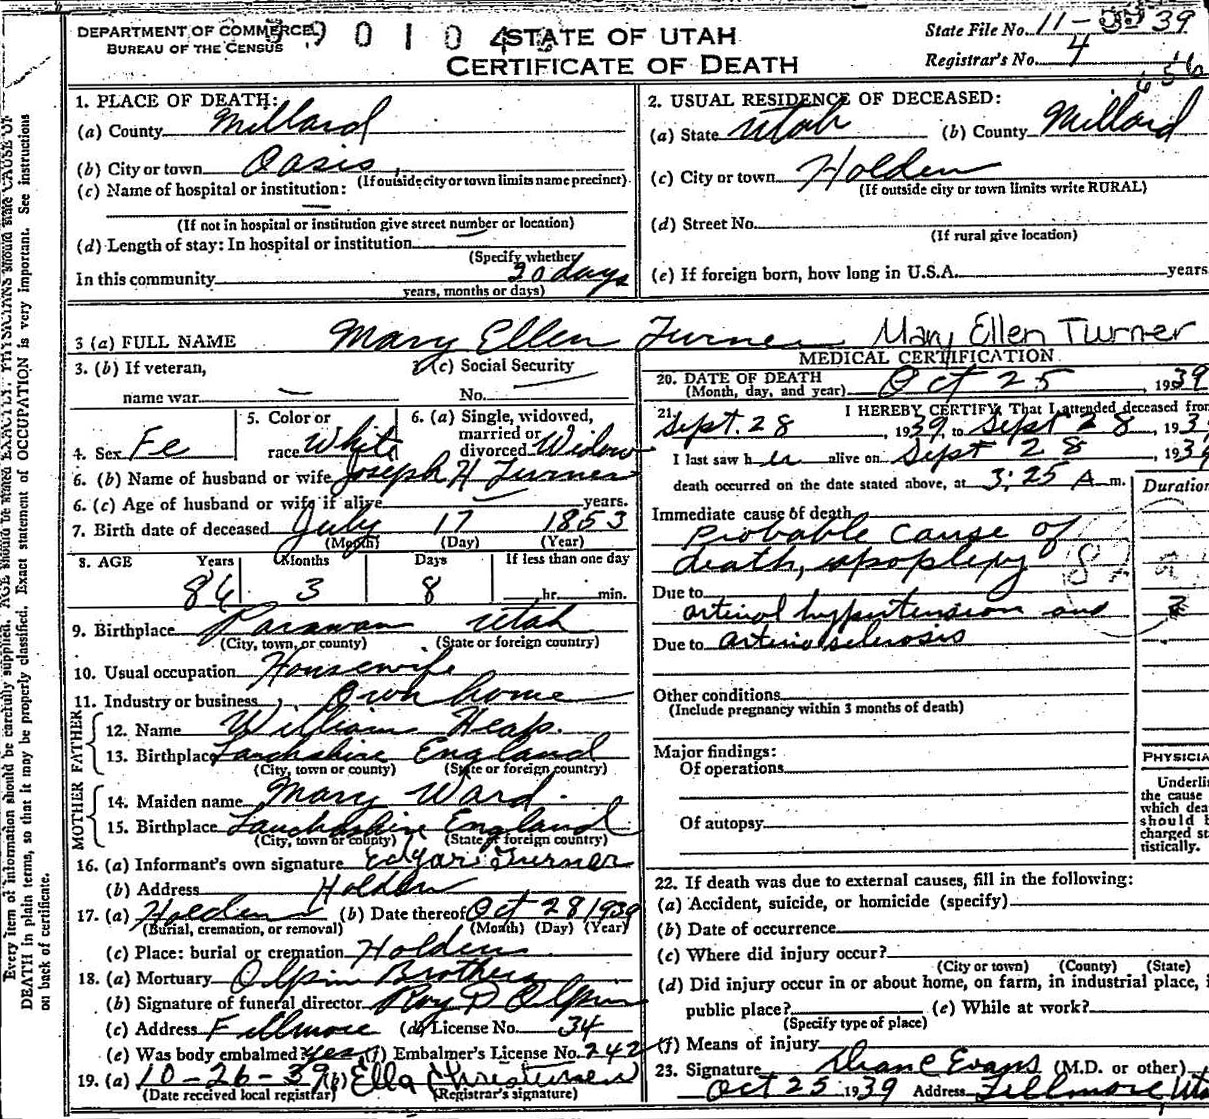 DEPARTMENT OF COMMERCE
BUREAU OF THE CENSUS
9 0 1 0 4
STATE OF UTAH
CERTIFICATE OF DEATH
State File No. 11- 39
Registrar's No. 4
1. PLACE OF DEATH:
(a) County Millard
(b) City or town Oasis
(If outside city or town limits name precinct)
(c) Name of hospital or institution: —
(If not in hospital or institution give street number or location)
(d) Length of stay: In hospital or institution —
(Specify whether
In this community 30 days
years, months or days)
2. USUAL RESIDENCE OF DECEASED:
(a) State Utah (b) County Millard
(c) City or town Holden
(If outside city or town limits write RURAL)
(d) Street No.
(If rural give location)
(e) If foreign born, how long in U.S.A. years
3 (a) FULL NAME Mary Ellen Turner Mary Ellen Turner
3. (b) If veteran,
name war —
3 (c) Social Security
No. —
4. Sex Fe
5. Color or
race White
6. (a) Single, widowed,
married or
divorced Widow
6. (b) Name of husband or wife Joseph H Turner
6. (c) Age of husband or wife if alive — years.
7. Birth date of deceased July 17 1853
(Month) (Day) (Year)
8. AGE Years Months Days If less than one day
86 3 8 hr. min.
9. Birthplace Parawan Utah
(City, town, or county) (State or foreign country)
10. Usual occupation Housewife
11. Industry or business Own home
FATHER
12. Name William Heap
13. Birthplace Lanchshire England
(City, town or county) (State or foreign country)
MOTHER
14. Maiden name Mary Ward
15. Birthplace Lanchashire England
(City, town or county) (State or foreign country)
16. (a) Informant's own signature Edgar Turner
(b) Address Holden
17. (a) Holden (b) Date thereof Oct 28 1939
(Burial, cremation, or removal) (Month) (Day) (Year)
(c) Place: burial or cremation Holden
18. (a) Mortuary Olpin Brothers
(b) Signature of funeral director Roy D Olpin
(c) Address Fillmore (d) License No. 34
(e) Was body embalmed yes (f) Embalmer's License No. 242
19. (a) 10-26-39 (b) Ella Christensen
(Date received local registrar) (Registrar's signature)
MEDICAL CERTIFICATION
20. DATE OF DEATH
(Month, day, and year) Oct 25, 1939
21. I HEREBY CERTIFY, That I attended deceased from
Sept. 28, 1939, to Sept 28, 193
I last saw her alive on Sept 28, 193
death occurred on the date stated above, at 3:25 A m.
Duration
Immediate cause of death
Probable cause of
death, apoplexy
Due to
arterial hypertension and
Due to arteriosclerosis
Other conditions
(Include pregnancy within 3 months of death)
Major findings:
Of operations
Of autopsy
PHYSICIA
Underli
the cause
which dea
should b
charged st
tistically.
22. If death was due to external causes, fill in the following:
(a) Accident, suicide, or homicide (specify)
(b) Date of occurrence
(c) Where did injury occur?
(City or town) (County) (State)
(d) Did injury occur in or about home, on farm, in industrial place, i
public place? (e) While at work?
(Specify type of place)
(f) Means of injury
23. Signature Duane Evans (M.D. or other)
Oct 25 1939 Address Fillmore, Uta
Every item of information should be carefully supplied. AGE should be stated EXACTLY. PHYSICIANS should state CAUSE OF
DEATH in plain terms, so that it may be properly classified. Exact statement of OCCUPATION is very important. See instructions
on back of certificate.